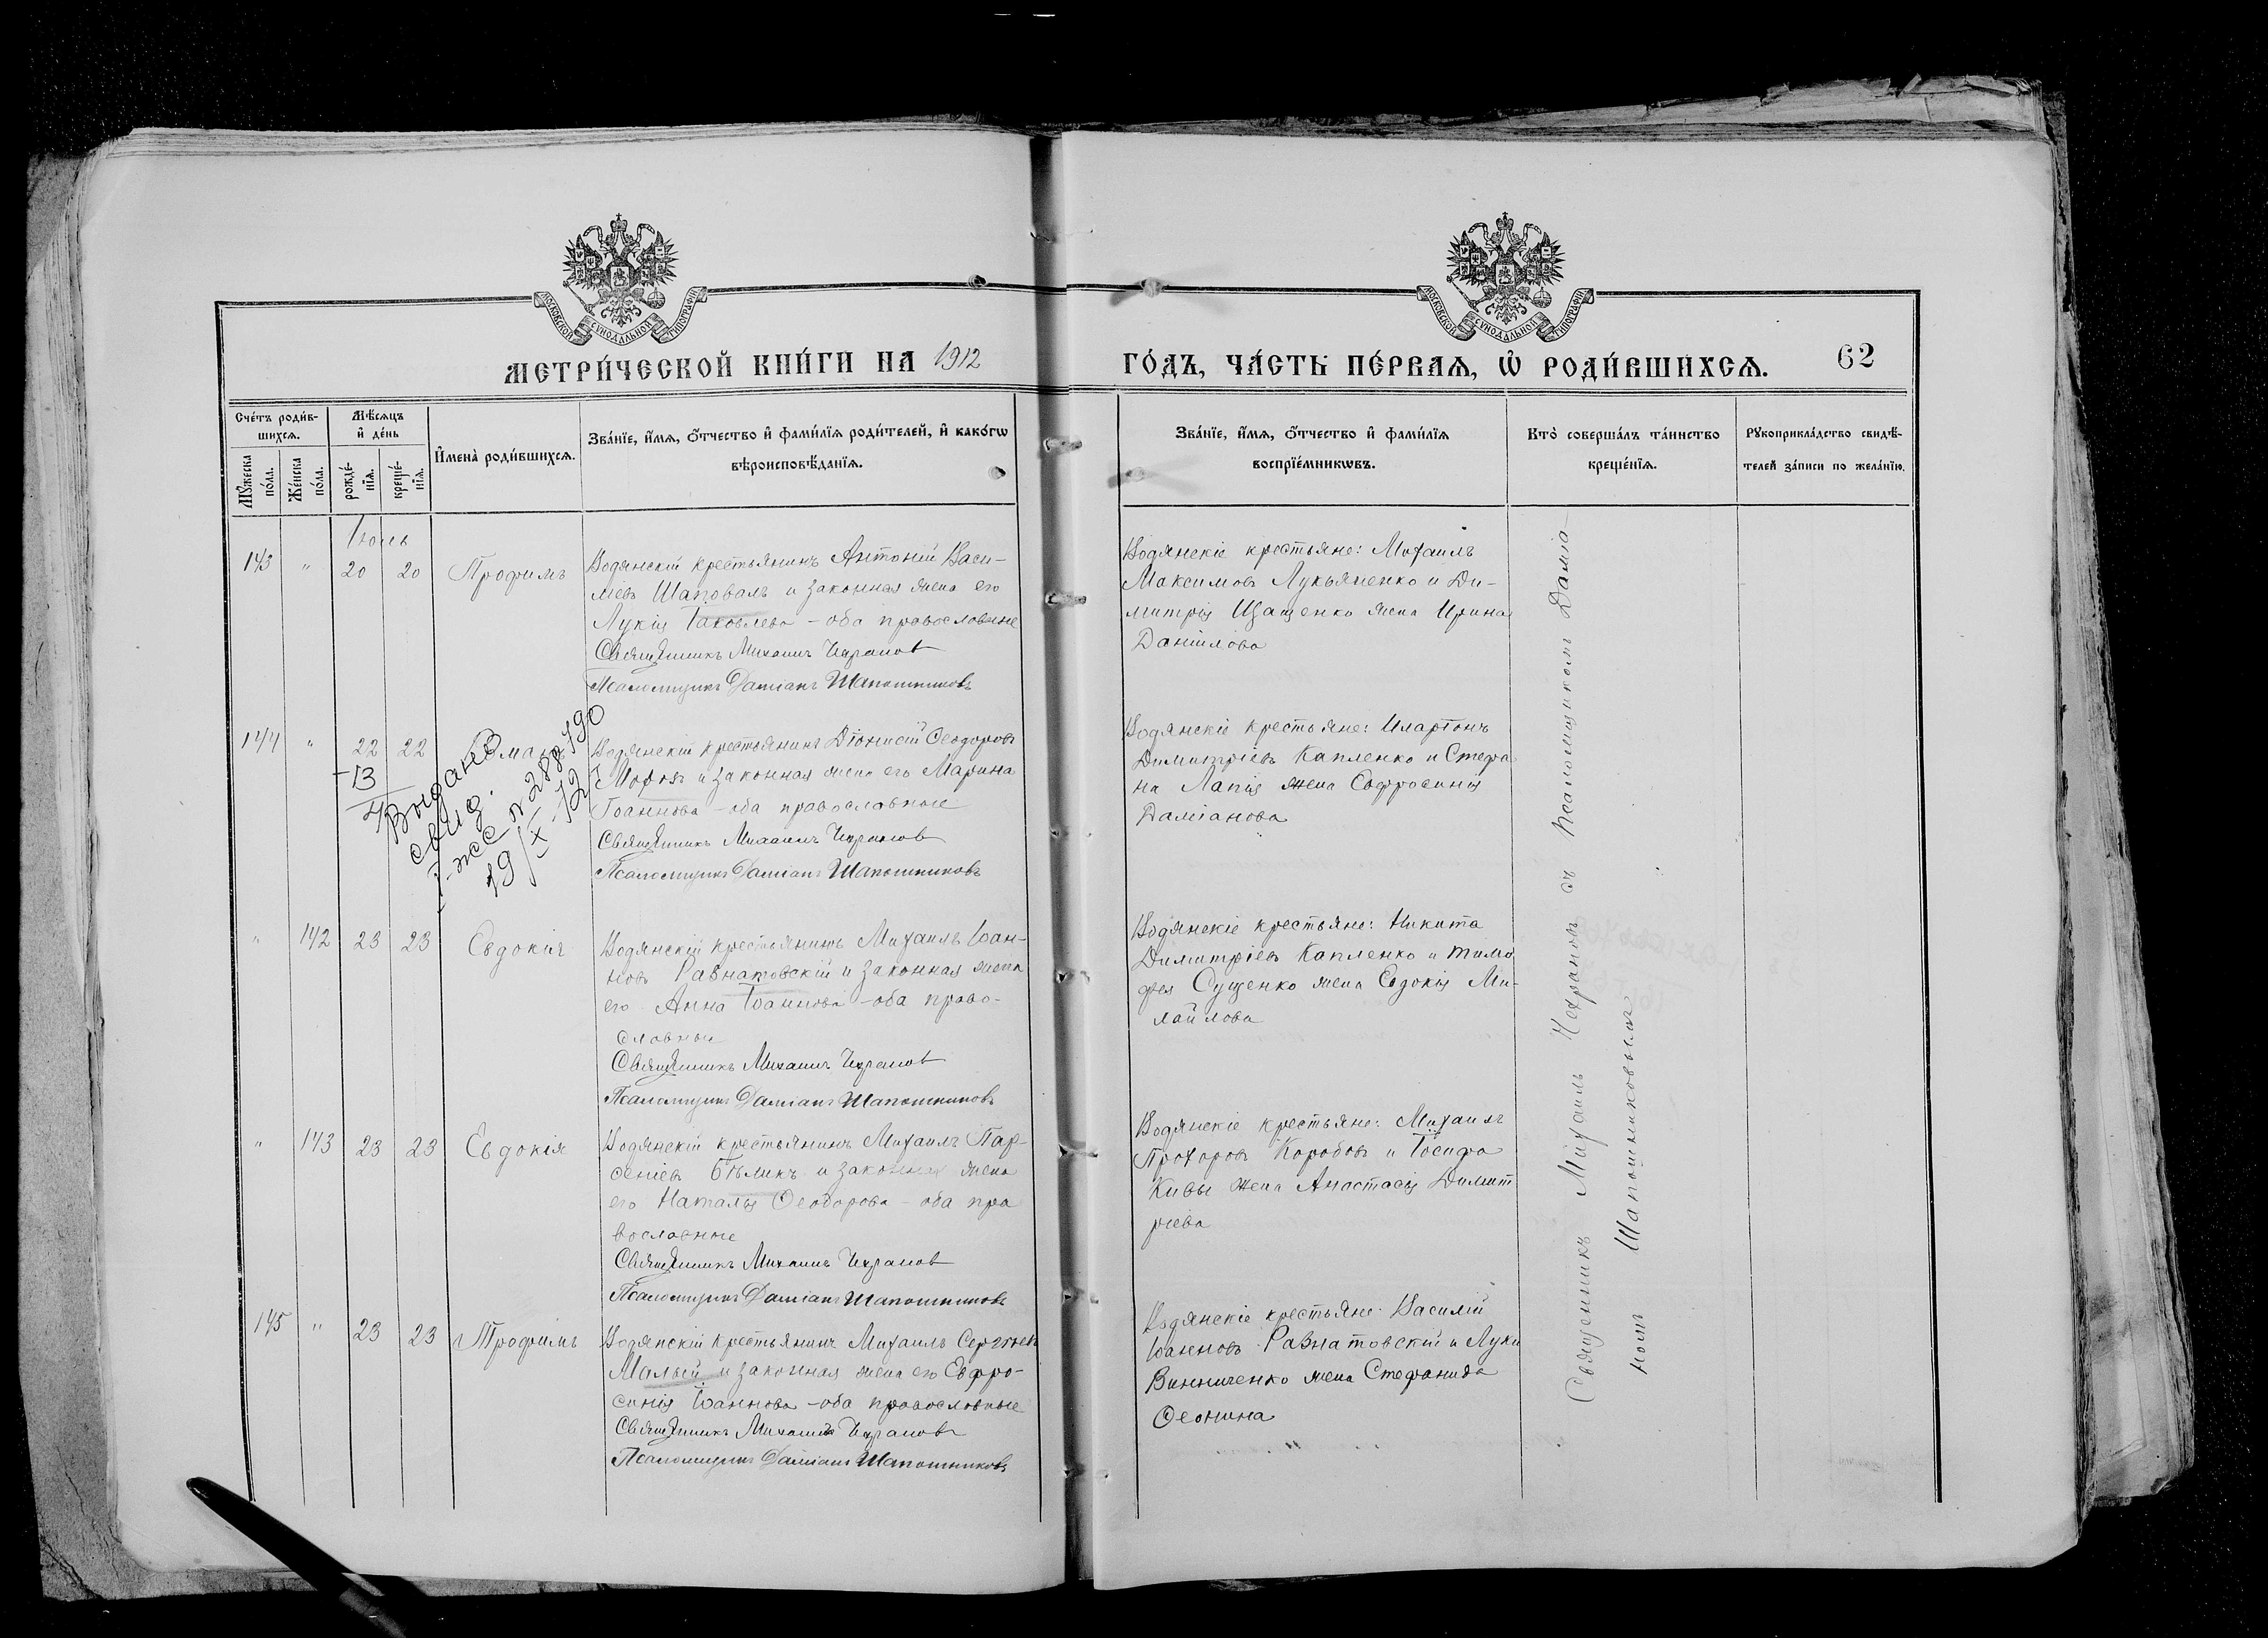 МОСКОВСКОЙ СУНОДАЛЬНОЙ ТИПОГРАФІИ
МОСКОВСКОЙ СУНОДАЛЬНОЙ ТИПОГРАФІИ
МЕТРИ́ЧЕСКОЙ КНИ́ГИ НА 1912
ГО́ДЪ, ЧА́СТЬ ПЕ́РВАѦ, Ѽ РОДИ́ВШИХСѦ.
62
Сче́тъ роди́в-
шихсѧ.
Мꙋ́жеска
по́ла.
Же́нска
по́ла.
Мѣ́сѧцъ
и҆ де́нь
рожде́-
нїѧ.
креще́-
нїѧ.
И҆мена̀ роди́вшихсѧ.
Зва́нїе, и҆́мѧ, ѻ҆́тчество и҆ фами́лїѧ роди́телей, и҆ како́гѡ
вѣроисповѣ́данїѧ.
Зва́нїе, и҆́мѧ, ѻ҆́тчество и҆ фами́лїѧ
воспрїе́мникѡвъ.
Кто̀ соверша́лъ та́инство
креще́нїѧ.
Рꙋкоприкла́дство свидѣ́-
телей за́писи по жела́нїю.
Іюль
143 " 20 20 Трофимъ
Водянскій крестьянинъ Антоній Васи-
ліевъ Шаповалъ и законная жена его
Лукія Іаковлева - оба православные
Священникъ Михаилъ Чехранов
Псаломщикъ Даміанъ Шапошниковъ
Водянскіе крестьяне: Михаилъ
Максимовъ Лукьяненко и Ди-
митрія Ищенко жена Ирина
Даніилова
144 " 22 22 Романъ
-13
Выдано
свид.
19/IX-12 г
Водянскій крестьянинъ Діонисій Ѳеодоровъ
Морозъ и законная жена его Марина
Іоаннова - оба православные
Священникъ Михаилъ Чехранов
Псаломщикъ Даміанъ Шапошниковъ
Водянскіе крестьяне: Иларіонъ
Димитріевъ Капленко и Стефа
на Лапія жена Евфросинія
Даміанова
" 142 23 23 Евдокія
Водянскій крестьянинъ Михаилъ Іоан-
новъ Равнатовскій и законная жена
его Анна Іоаннова - оба право-
славные
Священникъ Михаилъ Чехранов
Псаломщикъ Даміанъ Шапошниковъ
Водянскіе крестьяне: Никита
Димитріевъ Капленко и Тимо
фея Сущенко жена Евдокія Ми-
хаилова
" 143 23 23 Евдокія
Водянскій крестьянинъ Михаилъ Пар-
ѳеніевъ Бѣликъ и законная жена
его Наталія Ѳеодорова - оба пра
вославные
Священникъ Михаилъ Чехранов
Псаломщикъ Даміанъ Шапошниковъ
Водянскіе крестьяне: Михаилъ
Прохоровъ Коробовъ и Іосифа
Кивы жена Анастасія Димит
ріева
145 " 23 23 Трофимъ
Водянскій крестьянинъ Михаилъ Сергѣевъ
Малый и законная жена его Евфро-
синія Іоаннова - оба православные
Священникъ Михаилъ Чехранов
Псаломщикъ Даміанъ Шапошниковъ
Водянскіе крестьяне: Василій
Іоанновъ Равнатовскій и Луки
Винниченко жена Стефанида
Ѳеонина
Священникъ Михаилъ Чехрановъ съ псаломщикомъ Даміа-
номъ Шапошниковымъ